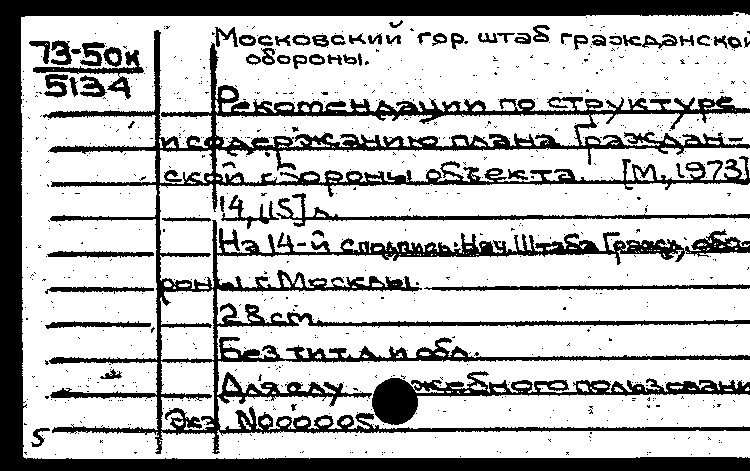 73-50к
5134
Московский гор. штаб гражданской
обороны.
Рекомендации по структуре
и содержанию плана Граждан-
ской обороны объекта. [М., 1973]
14, [15] л.
На 14-й с подпись: Нач. Штаба Гражд. обо-
роны г. Москвы.
28 см.
Без тит. л. и обл.
Для слу жебного пользования
Экз. N000005.
5